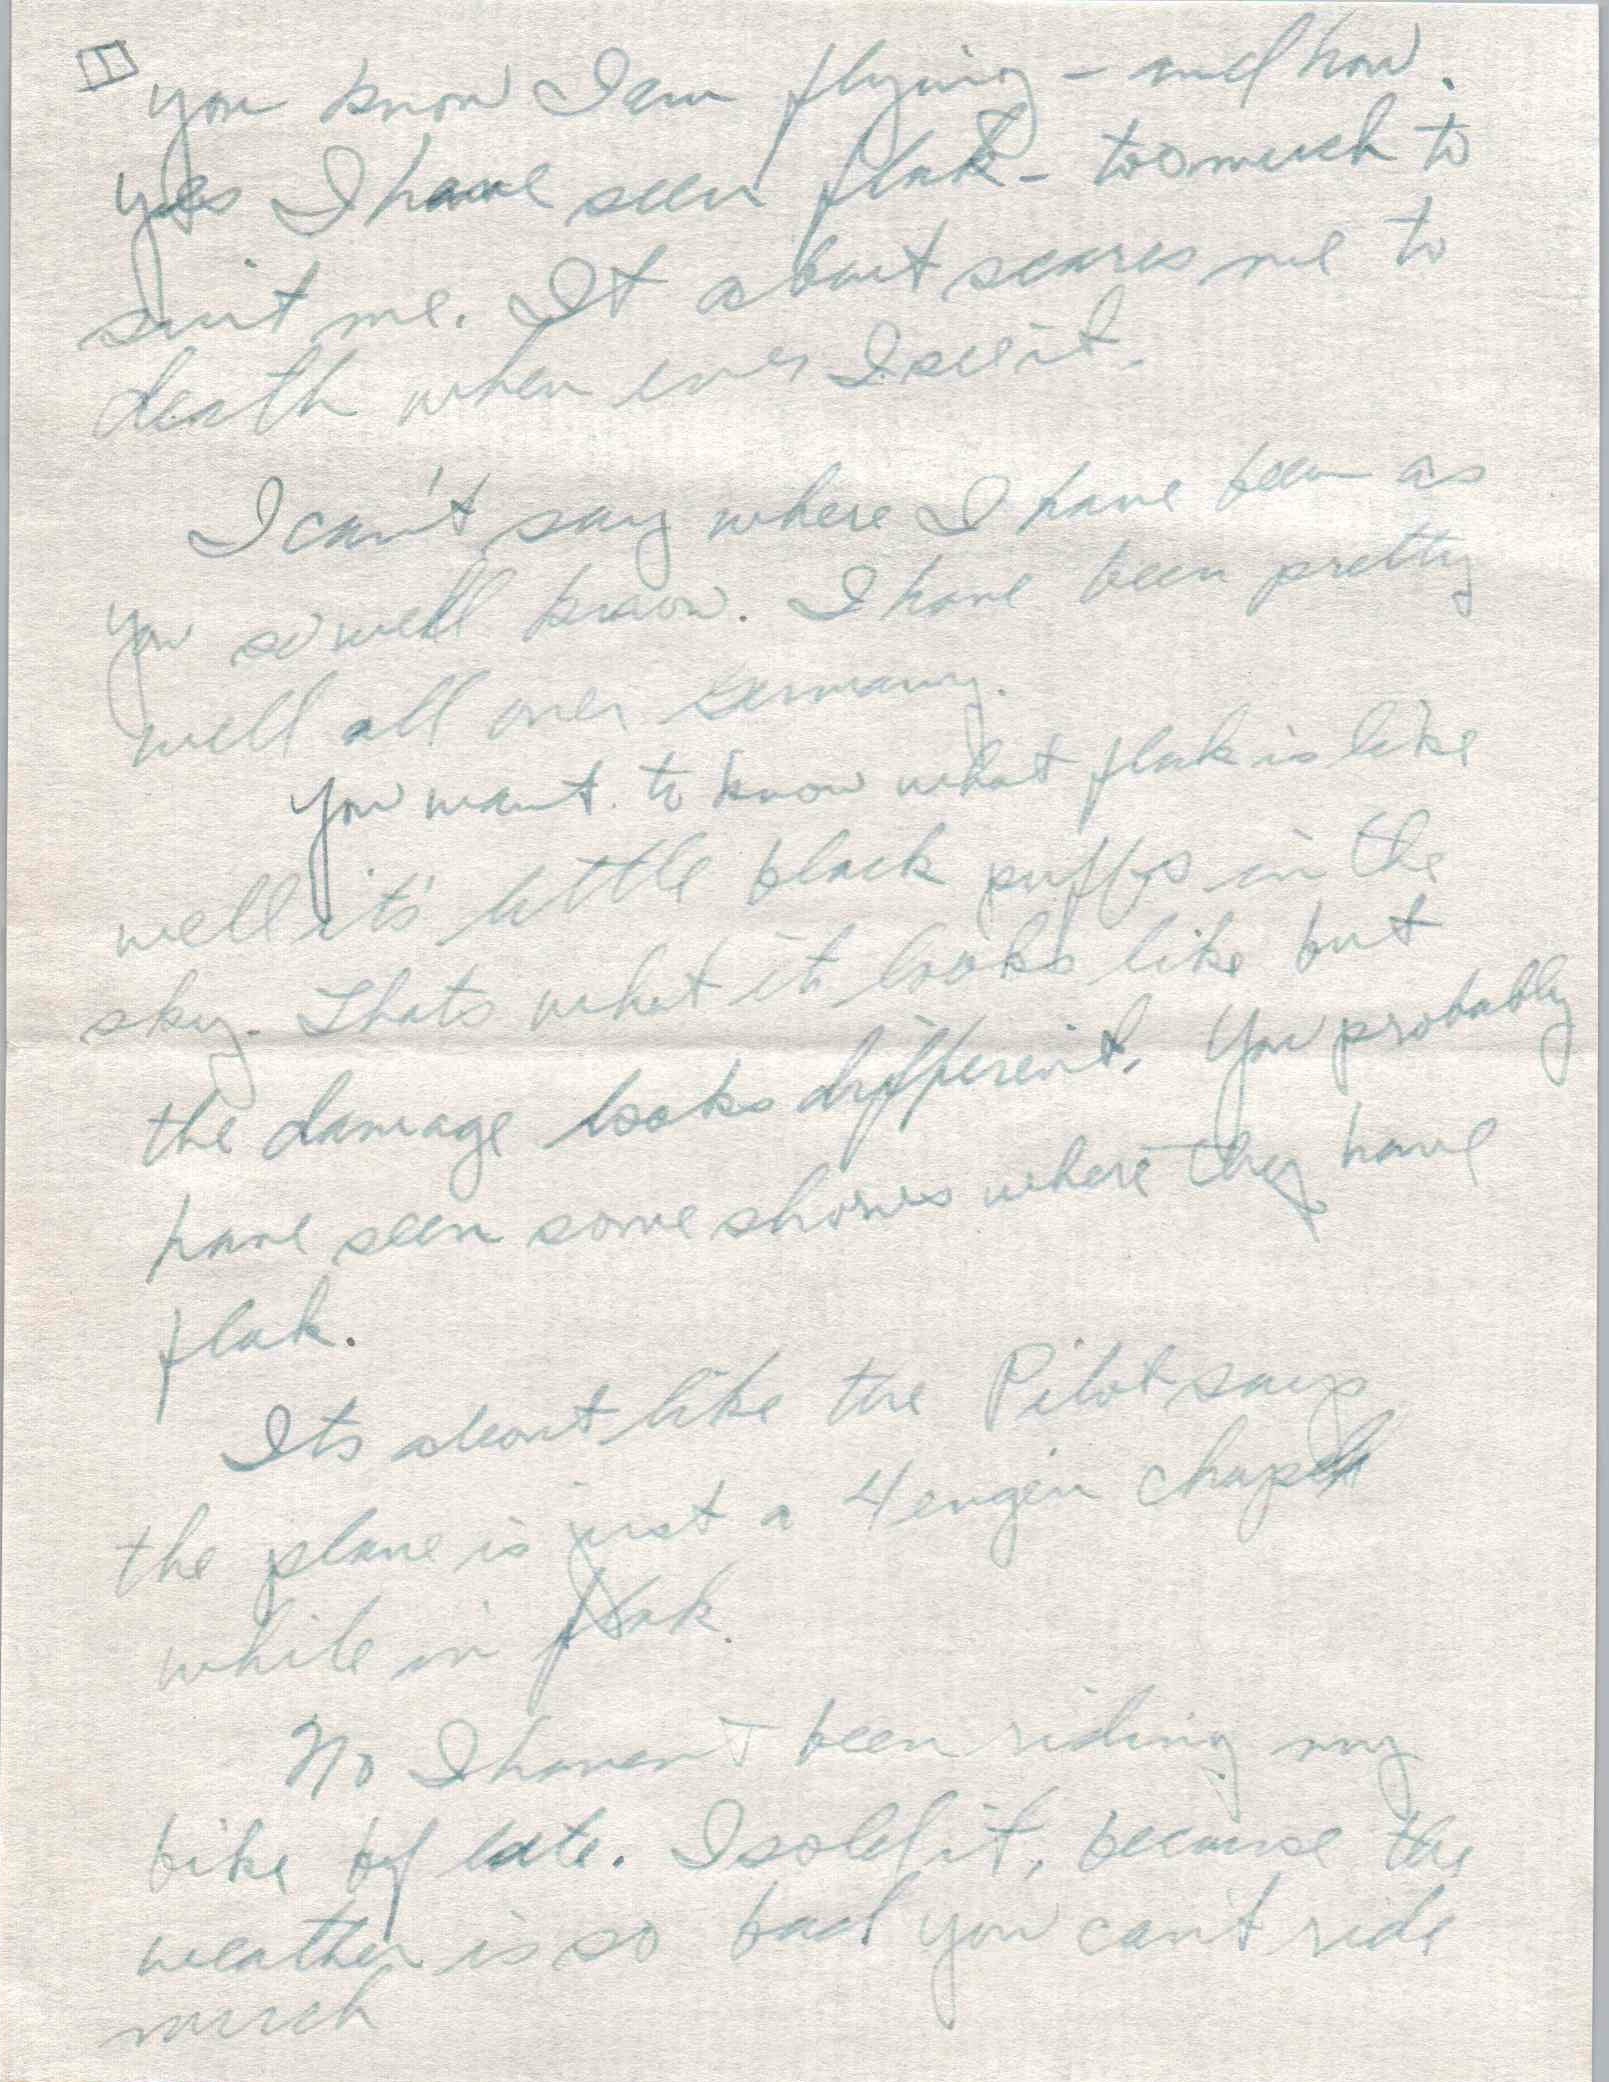 I
you know I am flying - and how.
yes I have seen flak - too much to
suit me. It about scares me to
death when ever I see it.
I can't say where I have been as
you so well know. I have been pretty
well all over Germany.
You want to know what flak is like
well it's little black puffs in the
sky. Thats what it looks like but
the damage looks different. You probably
have seen some shows where they have
flak.
Its about like the Pilot says
the plane is just a 4 engin chapel
while in flak.
No I haven't been riding my
bike of late. I sold it, because the
weather is so bad you can't ride
much